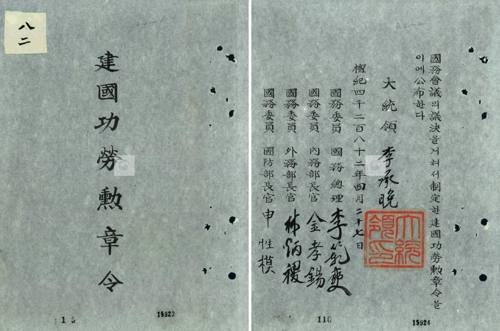 八二
建國功勞勲章令
15923
國務會議의議決을거처서制定한建國功勞勲章令을
이에公布한다
大統領 李承晩
大統領印
檀紀四千二百八十二年四月二十七日
國務委員 國務總理 李範奭
國務委員 內務部長官 金孝錫
國務委員 外務部長官 林炳稷
國務委員 國防部長官 申性模
116
15924